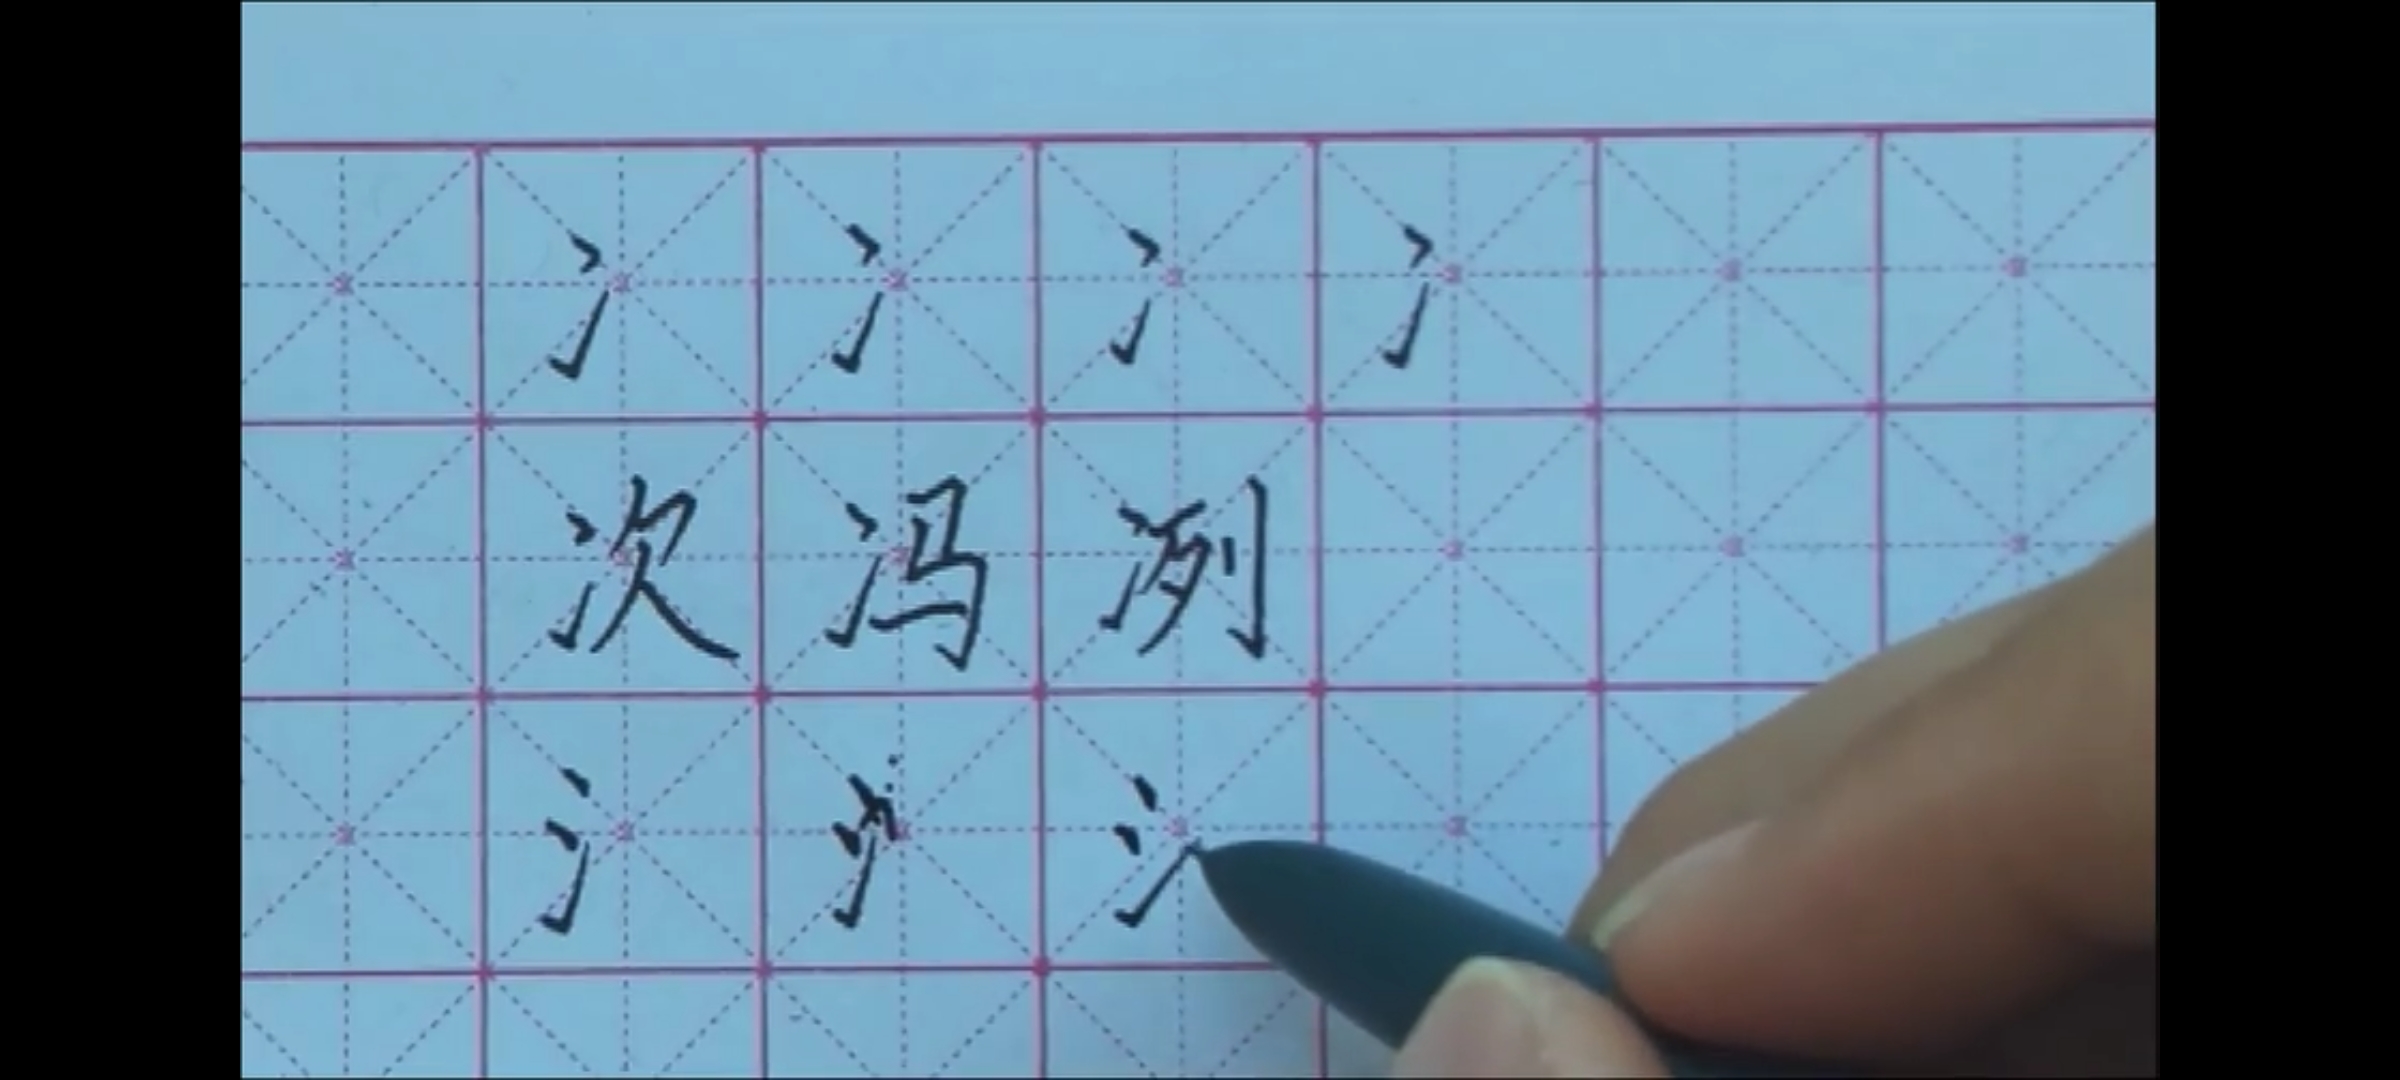 冫 冫 冫 冫
次 冯 冽
氵 氵 氵